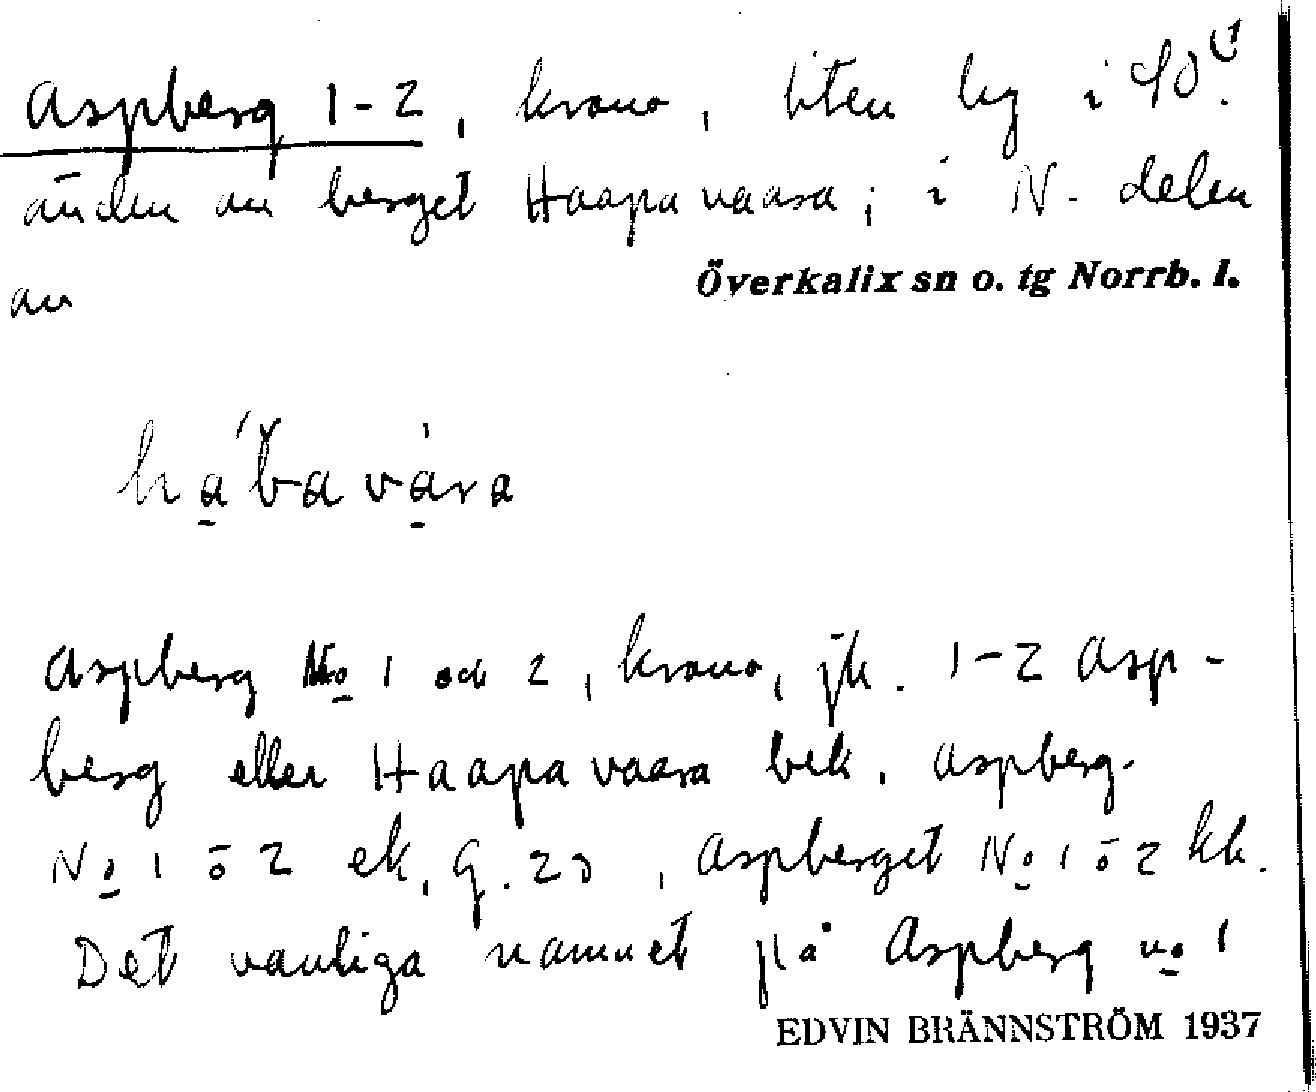 Aspberg 1-2, krono, liten by i SO.
änden av berget Haapavaara; i N. delen
av
Överkalix sn o. tg Norrb. l.
Aspberg No 1 och 2, krono, jb. 1-2 Asp-
berg eller Haapavaara bek. Aspberg
No 1 o 2 ek. G. 20, Aspberget No 1 o 2 kb.
Det vanliga namnet på Aspberg no 1
EDVIN BRÄNNSTRÖM 1937